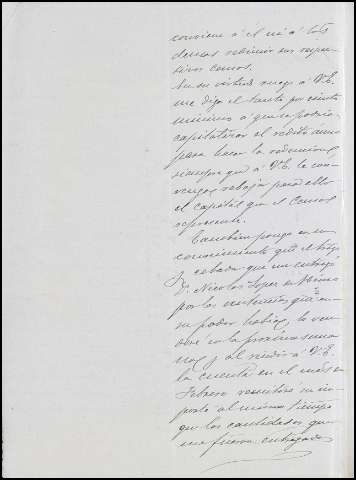 conviene a él ni a los
demas redimir sus respec
tivos censos.
En su virtud ruego á V.E.
me diga el tanto por ciento
minimo á que se podria
capitalizar el redito anual
para hacer la redencion,
siempre que á V.E. le con
venga rebajar para ello
el capital que el Censo
representa.
Tambien pongo en su
conocimiento que el trigo
y cebada que me entregó
D. Nicolas Lopez
por las que en
su poder habia, lo ven
deré en la proxima sema
na, y al rendir á V.E.
la cuenta en el mes de
Febrero remitiré su im
porte al mismo tiempo
que las cantidades que
me fueron entregadas